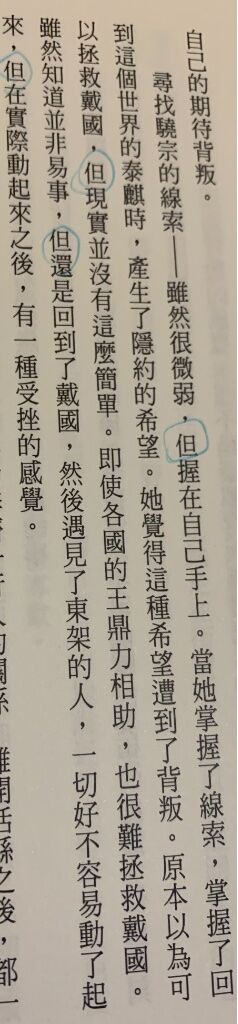 自己的期待背叛。
尋找驍宗的線索——雖然很微弱，但握在自己手上。當她掌握了線索，掌握了回
到這個世界的泰麒時，產生了隱約的希望。她覺得這種希望遭到了背叛。原本以為可
以拯救戴國，但現實並沒有這麼簡單。即使各國的王鼎力相助，也很難拯救戴國。
雖然知道並非易事，但還是回到了戴國，然後遇見了東架的人，一切好不容易動了起
來，但在實際動起來之後，有一種受挫的感覺。
離開活縣之後，都一